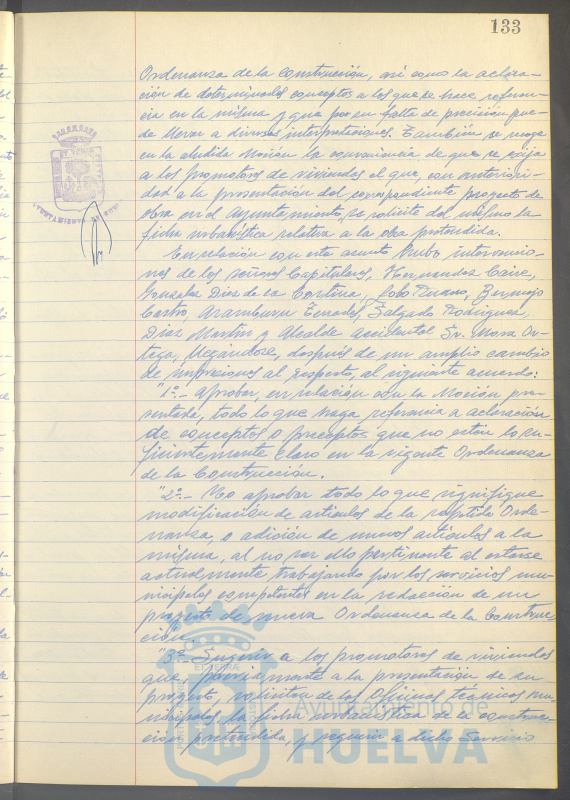 133
Ordenanza de la Construcción, así como la aclara-
ción de determinados conceptos a los que se hace referen-
cia en la misma y que por su falta de precisión pue-
de llevar a diversas interpretaciones. También se recoge
en la aludida Moción la conveniencia de que se exija
a los promotores de viviendas el que, con anteriori-
dad a la presentación del correspondiente proyecto de
obra en el Ayuntamiento, se solicite del mismo la
ficha urbanística relativa a la obra pretendida.
En relación con este asunto hubo intervencio-
nes de los señores Capitulares, Hernández Caire,
González Díaz de la Cortina, Lobo Durano, Bermejo
Castro, Aramburu Terrades, Salgado Rodríguez,
Díaz Martín y Alcalde accidental Sr. Mora Or-
tega, llegándose, después de un amplio cambio
de impresiones al respecto, al siguiente acuerdo:
"1º.- Aprobar, en relación con la Moción pre-
sentada, todo lo que haga referencia a aclaración
de conceptos o preceptos que no estén lo su-
ficientemente claro en la vigente Ordenanza
de la Construcción.
"2º.- No aprobar todo lo que signifique
modificación de artículos de la repetida Orde-
nanza, o adición de nuevos artículos a la
misma, al no ser ello pertinente al estarse
actualmente trabajando por los servicios mu-
nicipales competentes en la redacción de un
proyecto de nueva Ordenanza de la Construc-
ción.
"3º.- Sugerir a los promotores de viviendas
que, previamente a la presentación de su
proyecto, soliciten de las Oficinas técnicas mu-
nicipales la ficha urbanística de la construc-
ción pretendida, y seguir a dicho Servicio
Ayuntamiento de
HUELVA